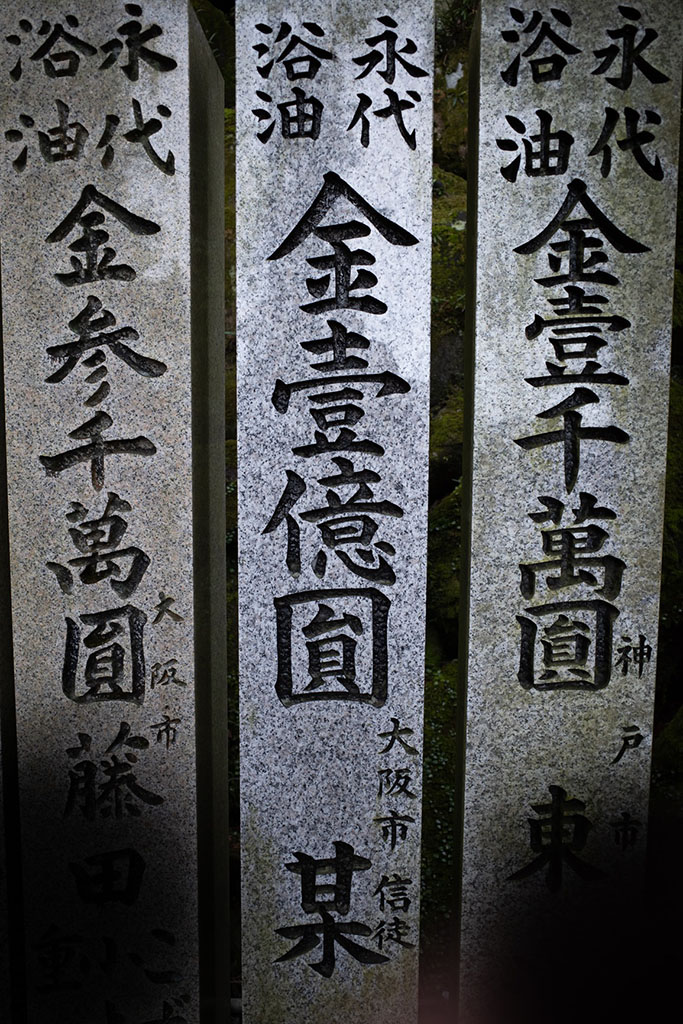 永代
浴油
金壹千萬圓
神戸市
東
永代
浴油
金壹億圓
大阪市信徒
某
永代
浴油
金参千萬圓
大阪市
藤田